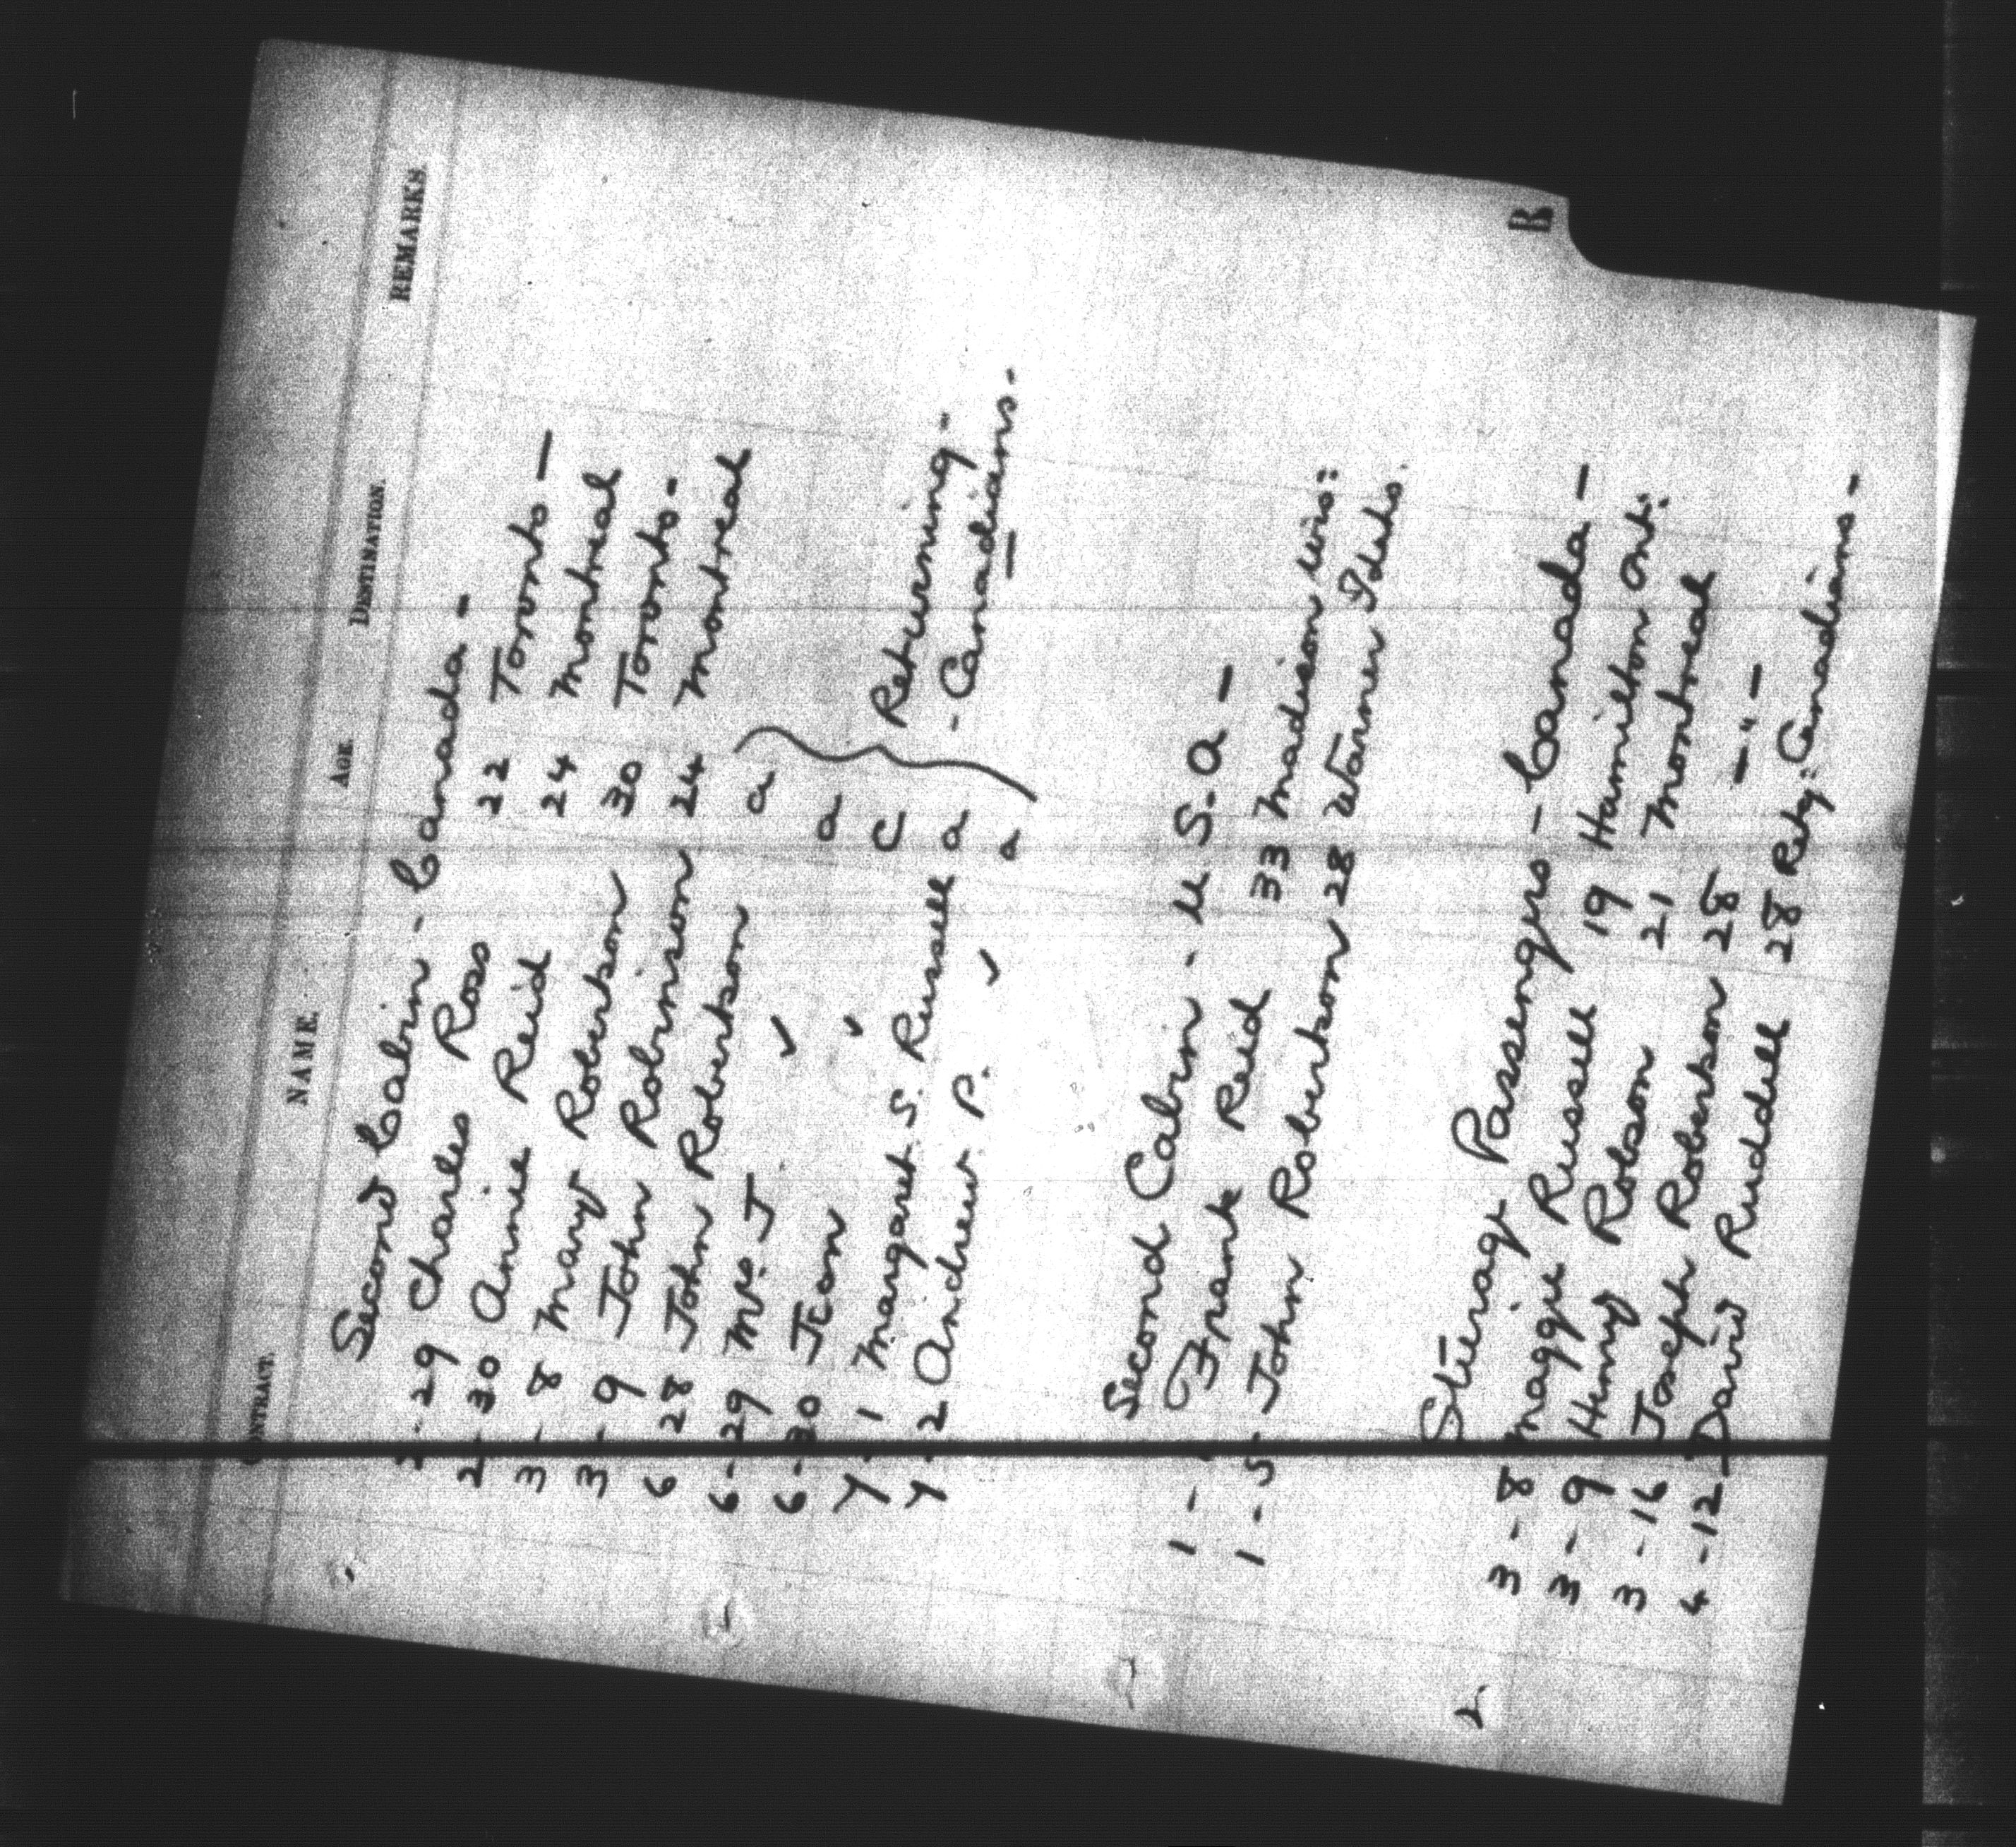 CONTRACT. NAME. AGE. DESTINATION. REMARKS.
Second Cabin - Canada -
2 - 29 Charles Ross 22 Toronto -
2 - 30 Annie Reid 24 Montreal
3 - 8 Mary Robertson 30 Toronto -
3 - 9 John Robinson 24 Montreal
6 28 John Robertson a
6 - 29 Mrs. J ✓ a
6 - 30 Jean ✓ c Returning -
7 - 1 Margaret S. Russell a - Canadians -
7 - 2 Andrew P. ✓ a
Second Cabin - U.S.A -
1 - Frank Reid 33 Madison Wis:
1 - 5 John Robertson 28 Warner Idaho.
Steerage Passengers - Canada -
3 - 8 Maggie Russell 19 Hamilton Ont:
3 - 9 Henry Robson 21 Montreal
3 - 16 Joseph Robertson 28 - " -
4 - 12 - David Ruddell 28 Retg: Canadians -
R